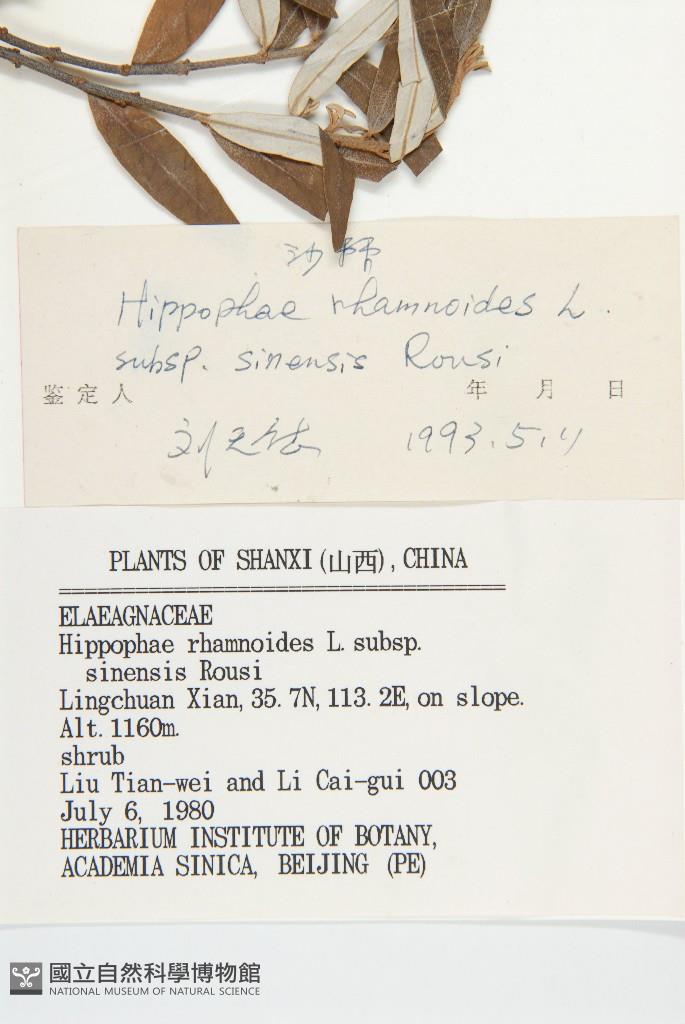 沙棘
Hippophae rhamnoides L.
subsp. sinensis Rousi
鉴定人 年 月 日
1993.5.11
PLANTS OF SHANXI (山西), CHINA
ELAEAGNACEAE
Hippophae rhamnoides L. subsp.
sinensis Rousi
Lingchuan Xian, 35.7N, 113.2E, on slope.
Alt. 1160m.
shrub
Liu Tian-wei and Li Cai-gui 003
July 6, 1980
HERBARIUM INSTITUTE OF BOTANY,
ACADEMIA SINICA, BEIJING (PE)
國立自然科學博物館
NATIONAL MUSEUM OF NATURAL SCIENCE